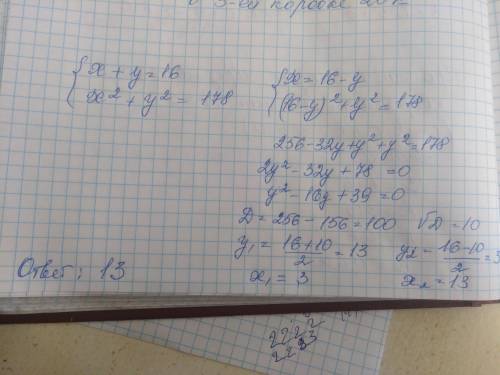 3-ей коробке
{ x + y = 16
x² + y² = 178
{ x = 16 - y
(16-y)² + y² = 178
256 - 32y + y² + y² = 178
2y² - 32y + 78 = 0
y² - 16y + 39 = 0
D = 256 - 156 = 100 √D = 10
y₁ = (16+10)/2 = 13 y₂ = (16-10)/2 = 3
x₁ = 3 x₂ = 13
Ответ: 13